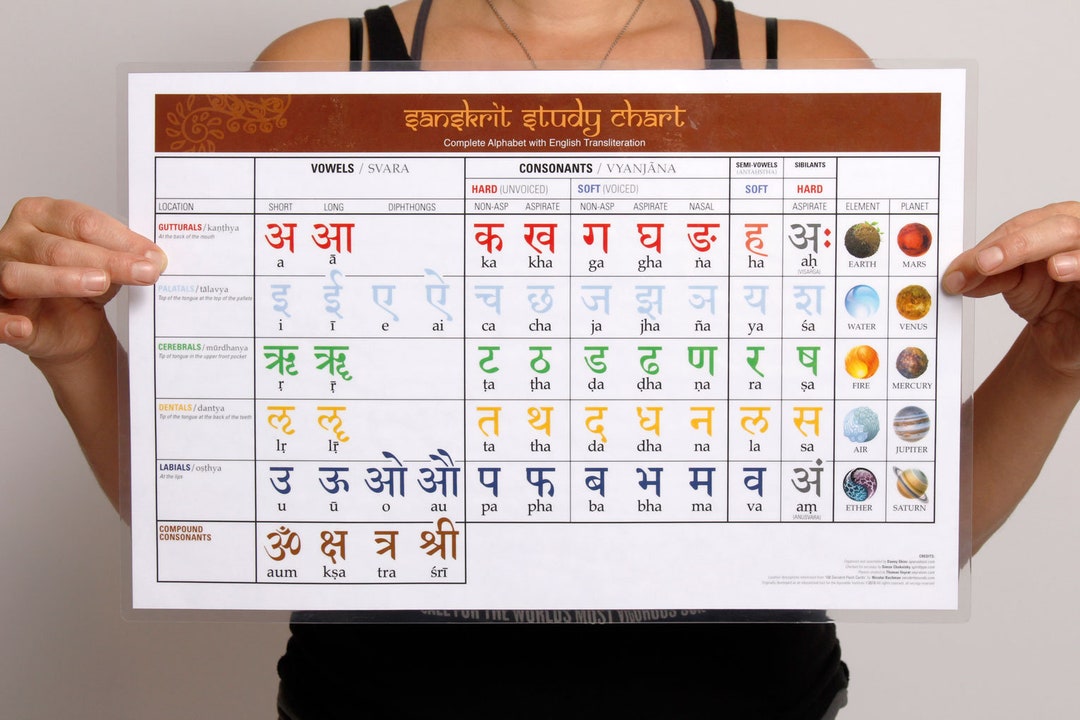 sanskrit study chart
Complete Alphabet with English Transliteration
VOWELS / SVARA
CONSONANTS / VYANJĀNA
SEMI-VOWELS
(ANTAHSTHA)
SIBILANTS
HARD (UNVOICED)
SOFT (VOICED)
SOFT
HARD
LOCATION
SHORT LONG DIPHTHONGS NON-ASP ASPIRATE NON-ASP ASPIRATE NASAL ASPIRATE ELEMENT PLANET
GUTTURALS/kaṇṭhya
At the back of the mouth
अ आ क ख ग घ ङ ह अः
a ā ka kha ga gha ṅa ha aḥ
(VISARGA)
EARTH MARS
PALATALS/tālavya
Tip of the tongue at the top of the palate
इ ई ए ऐ च छ ज झ ञ य श
i ī e ai ca cha ja jha ña ya śa
WATER VENUS
CEREBRALS/mūrdhanya
Tip of tongue in the upper front pocket
ऋ ॠ ट ठ ड ढ ण र ष
ṛ ṝ ṭa ṭha ḍa ḍha ṇa ra ṣa
FIRE MERCURY
DENTALS/dantya
Tip of the tongue at the back of the teeth
ऌ ॡ त थ द ध न ल स
lṛ lṝ ta tha da dha na la sa
AIR JUPITER
LABIALS/oṣṭhya
At the lips
उ ऊ ओ औ प फ ब भ म व अं
u ū o au pa pha ba bha ma va aṃ
(ANUSVARA)
ETHER SATURN
COMPOUND
CONSONANTS
ॐ क्ष त्र श्री
aum kṣa tra śrī
CREDITS:
FOR THE WORLDS MOST VIGOROUS